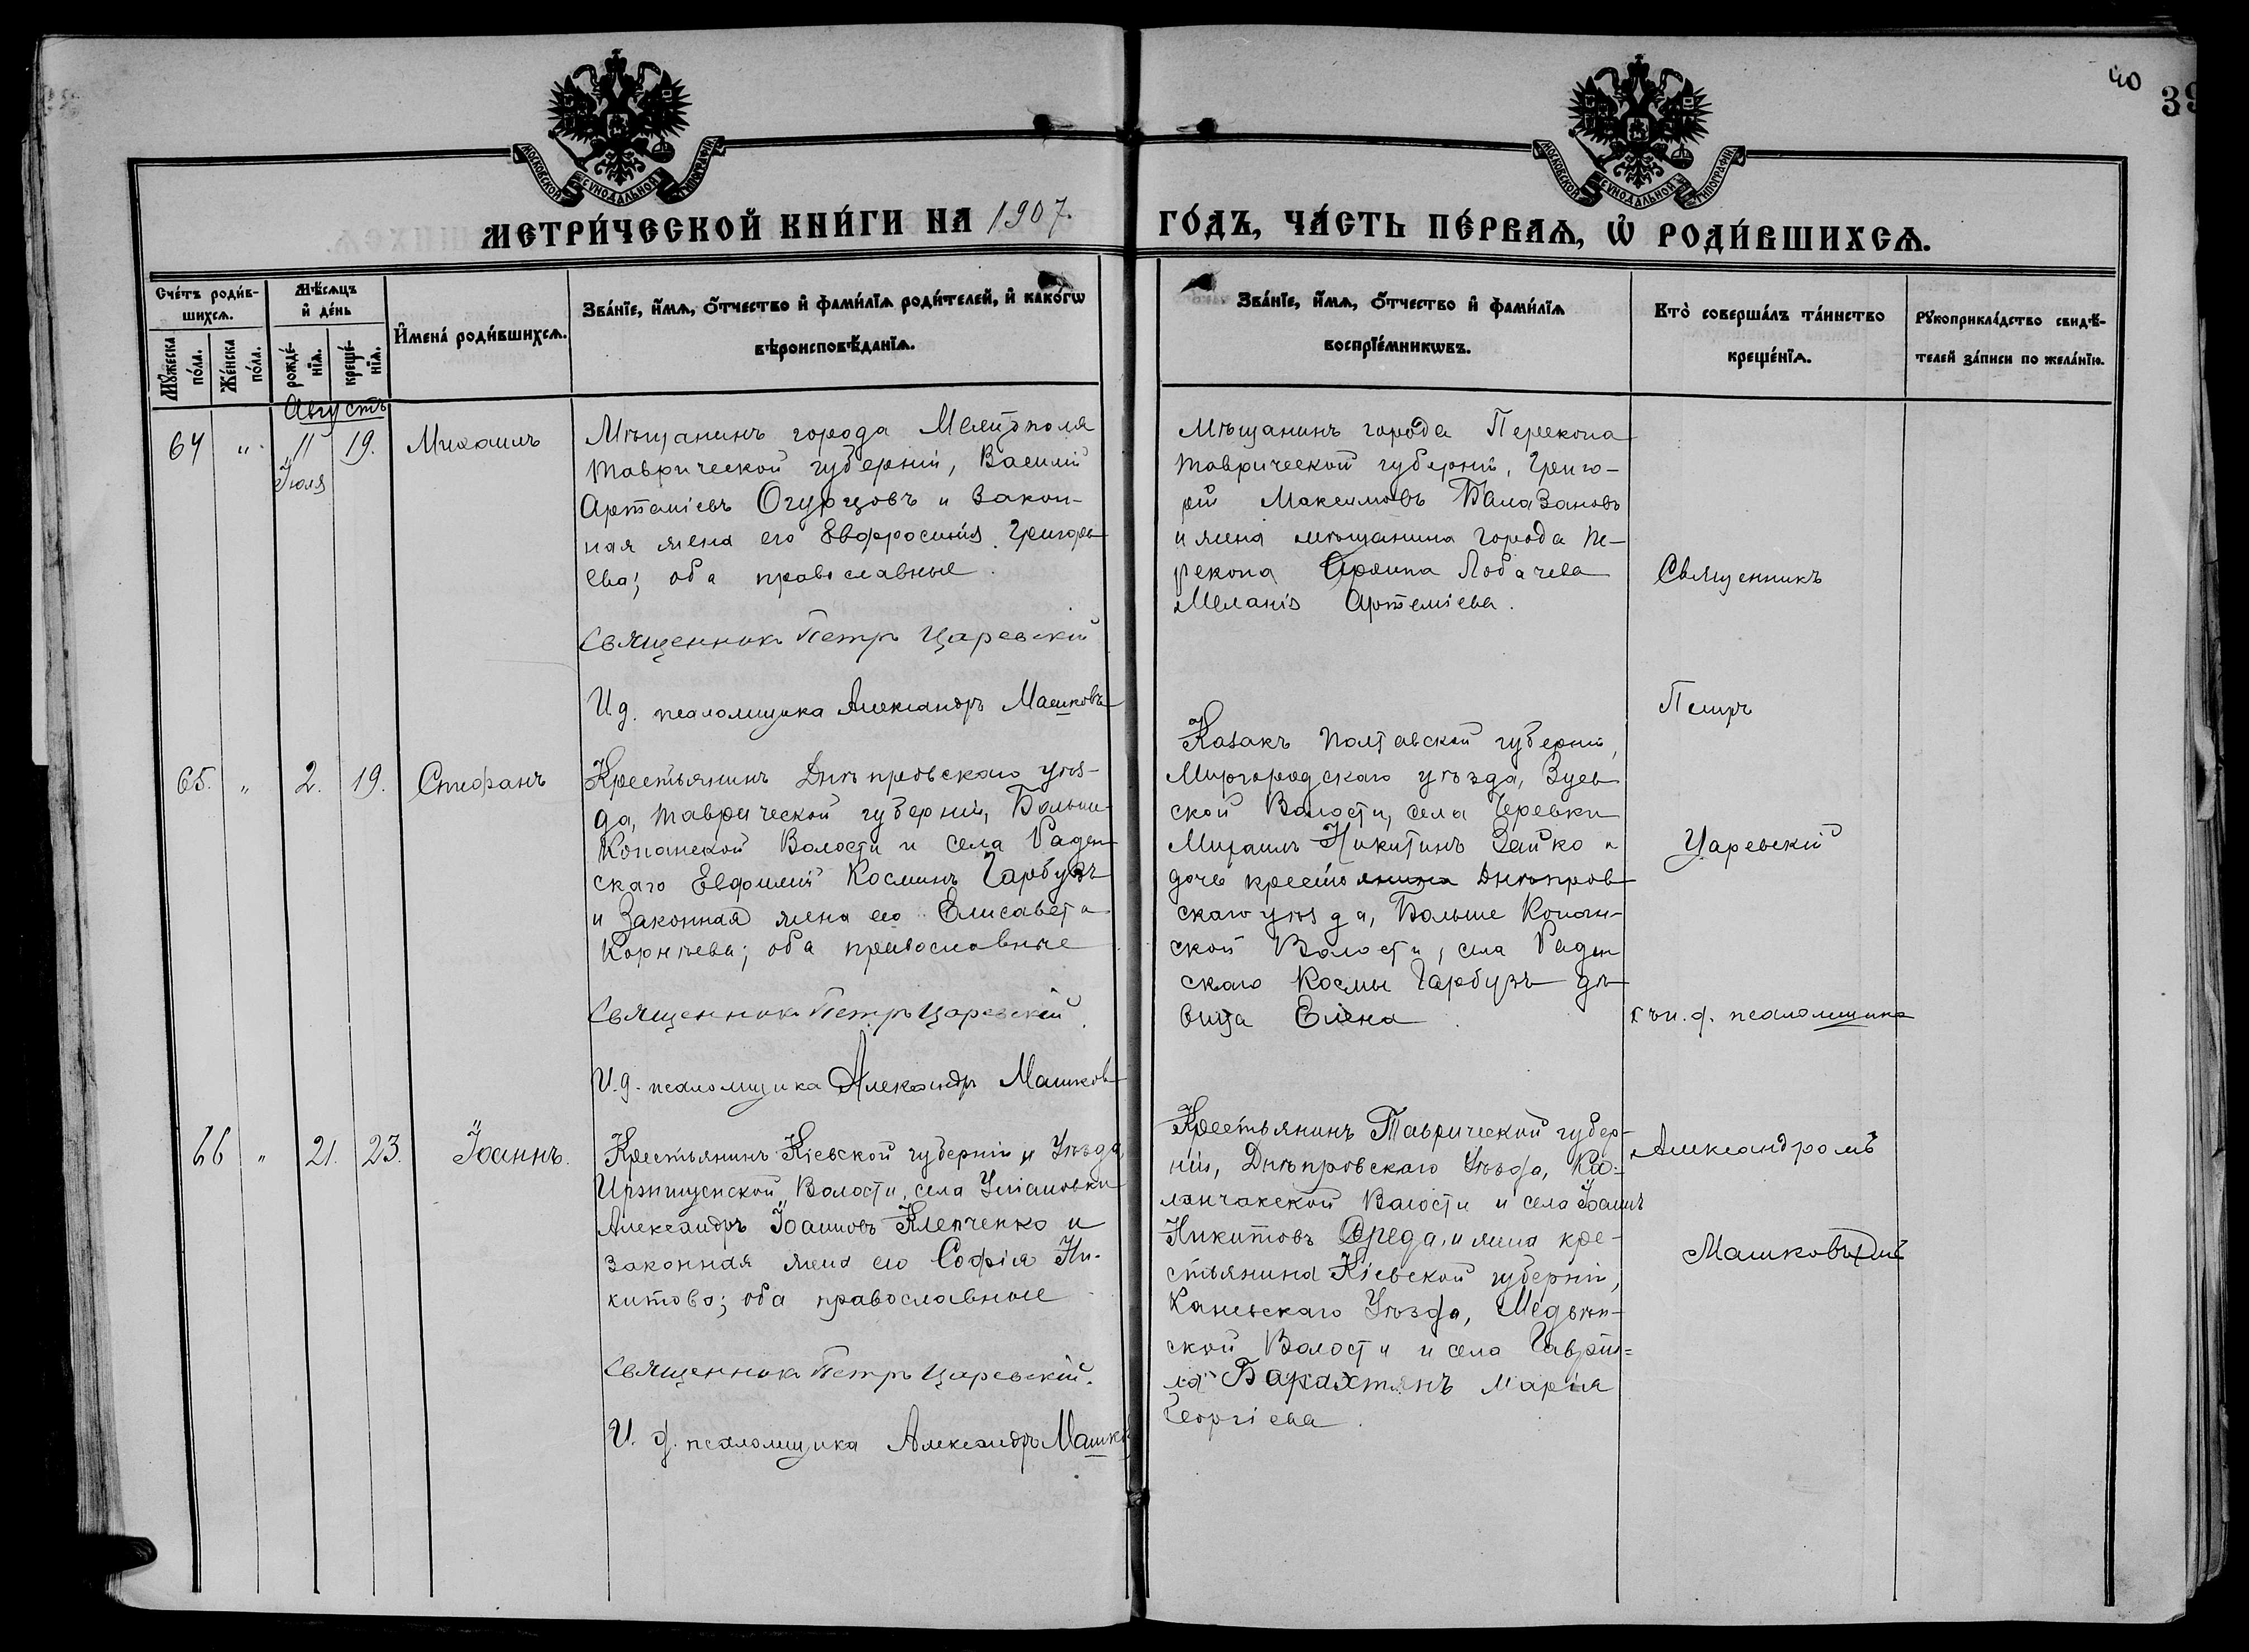 40
39
МОСКОВСКОЙ СѴНОДАЛЬНОЙ ТИПОГРАФІИ
МОСКОВСКОЙ СѴНОДАЛЬНОЙ ТИПОГРАФІИ
МЕТРИ́ЧЕСКОЙ КНИ́ГИ НА 1907.
ГО́ДЪ, ЧА́СТЬ ПЕ́РВАѦ, Ѡ҆ РОДИ́ВШИХСѦ.
Сче́тъ роди́в-
шихсѧ.
Мѣ́сѧцъ
и҆ де́нь
Мꙋ́жеска по́ла.
Же́нска по́ла.
рожде́-нїѧ.
креще́-нїѧ.
И҆мена̀ роди́вшихсѧ.
Зва́нїе, и҆́мѧ, ѻ҆́тчество и҆ фами́лїѧ роди́телей, и҆ како́гѡ
вѣроисповѣ́данїѧ.
Зва́нїе, и҆́мѧ, ѻ҆́тчество и҆ фами́лїѧ
воспрїе́мникѡвъ.
Кто̀ соверша́лъ та́инство
креще́нїѧ.
Рꙋкоприкла́дство свидѣ́-
телей за́писи по жела́нїю.
Августъ
64 " 11 19. Михаилъ
Іюля
Мѣщанинъ города Мелитополя
Таврической губерніи, Василій
Артеміевъ Огурцовъ и закон-
ная жена его Евфросинія Григорь-
ева; оба православные.
Священникъ Петръ Царевскій
И.д. псаломщика Александръ Машковъ
Мѣщанинъ города Перекопа
Таврической губерніи, Григо-
рій Максимовъ Балазановъ
и жена мѣщанина города Пе-
рекопа Лобачева
Меланія Артеміева.
Священникъ
Петръ
Царевскій
съ и.д. псаломщика
Александромъ
Машковымъ
65. " 2. 19. Стефанъ
Крестьянинъ Днѣпровскаго уѣз-
да, Таврической губерніи, Больше-
Копанской Волости и села Раден-
скаго Евфимій Косминъ Гарбузъ
и законная жена его Елисавета
Корнѣева; оба православные
Священникъ Петръ Царевскій.
И.д. псаломщика Александръ Машковъ
Казакъ Полтавской губерніи,
Миргородскаго уѣзда, Зуев-
ской Волости, села Черевки
Михаилъ Никитинъ Зайко и
дочь крестьянина Днѣпров-
скаго уѣзда, Больше Копан-
ской Волости, села Раден-
скаго Космы Гарбузъ дѣ-
вица Елена.
66 " 21. 23. Іоаннъ.
Крестьянинъ Кіевской губерніи и Уѣзда
Волости, села
Александръ Іоанновъ Клепченко и
законная жена его Софія Ни-
китова; оба православные
Священникъ Петръ Царевскій.
И. д. псаломщика Александръ Машковъ
Крестьянинъ Таврической губер-
ніи, Днѣпровскаго Уѣзда, Ка-
ланчакской Волости и села Іоаннъ
Никитовъ Середа, и жена кре-
стьянина Кіевской губерніи,
Каневскаго Уѣзда, Медвин-
ской Волости и села Гаврiи-
ла Марія
Георгіева.